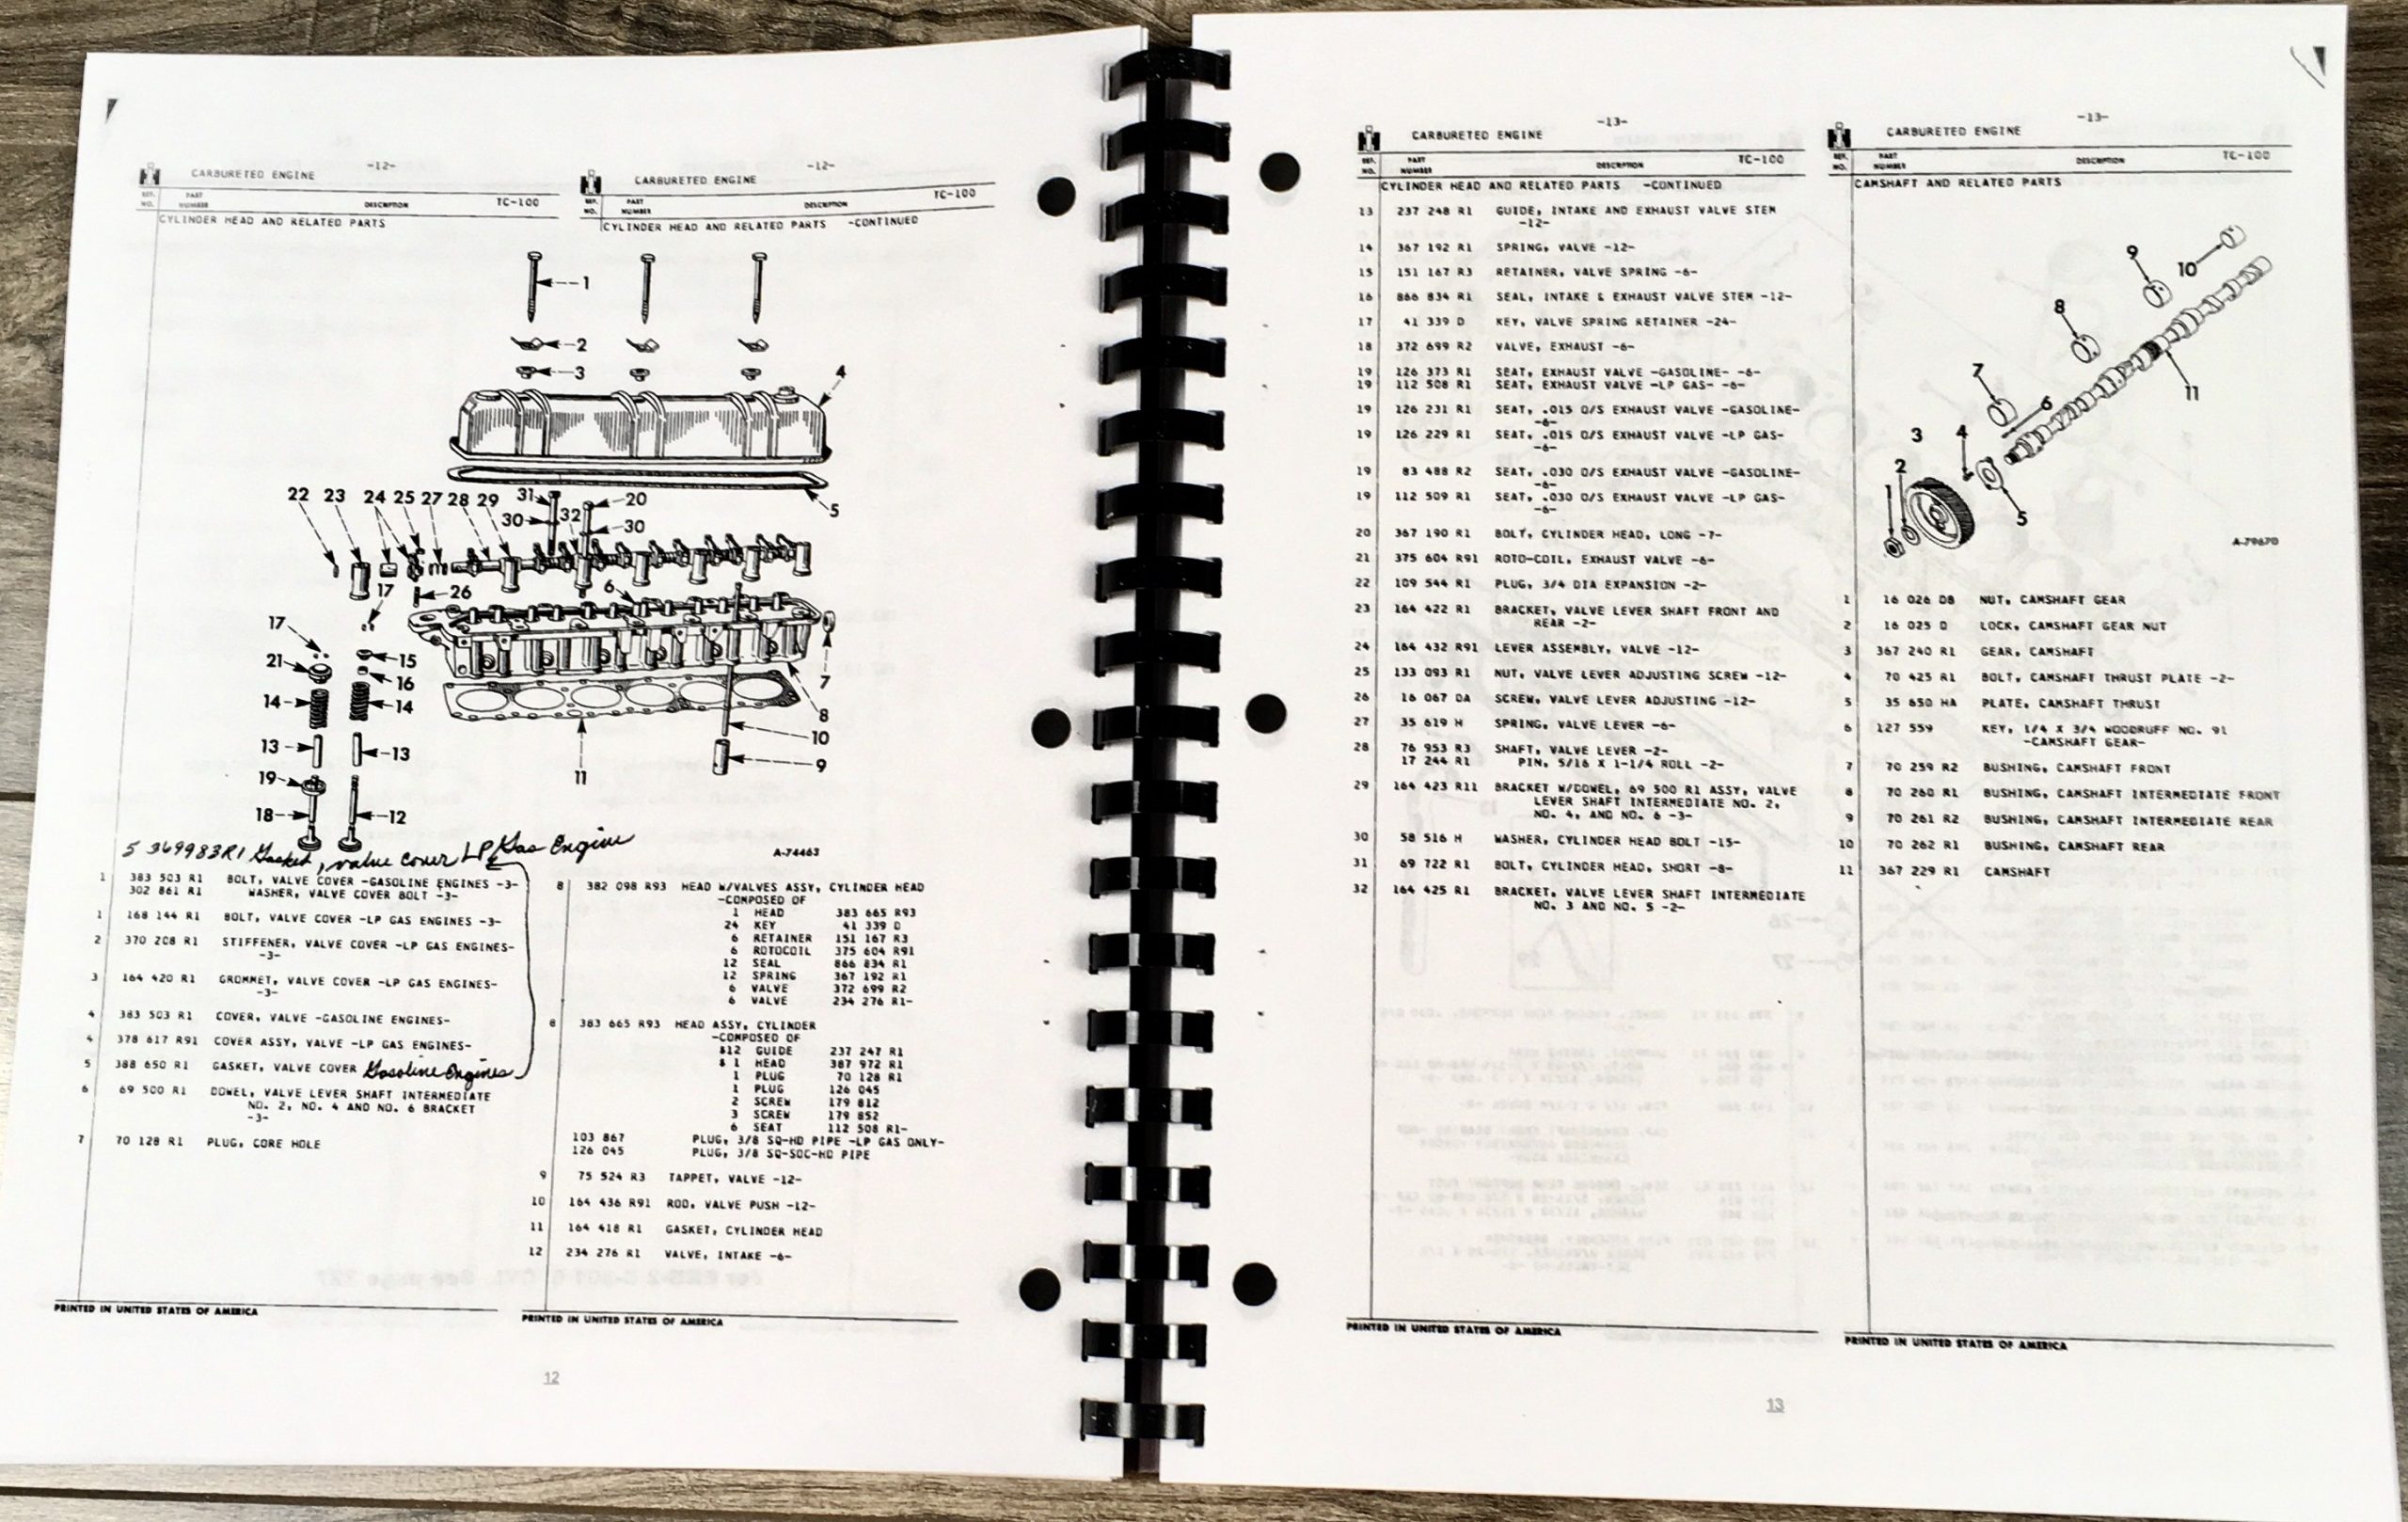 -12-
CARBURETED ENGINE
REF. NO. PART NUMBER DESCRIPTION TC-100
CYLINDER HEAD AND RELATED PARTS
-12-
CARBURETED ENGINE
REF. NO. PART NUMBER DESCRIPTION TC-100
CYLINDER HEAD AND RELATED PARTS -CONTINUED
1
2
3
4
5
22 23 24 25 27 28 29 31 20
30 32 30
17 26 6
17
21 15
16
14 14
7
8
13 13 10
9
19 11
18 12
A-74463
5 369983R1 Gasket, valve cover LP Gas Engine
1 383 503 R1 BOLT, VALVE COVER -GASOLINE ENGINES -3-
302 861 R1 WASHER, VALVE COVER BOLT -3-
1 168 144 R1 BOLT, VALVE COVER -LP GAS ENGINES -3-
2 370 208 R1 STIFFENER, VALVE COVER -LP GAS ENGINES-
-3-
3 164 420 R1 GROMMET, VALVE COVER -LP GAS ENGINES-
-3-
4 383 503 R1 COVER, VALVE -GASOLINE ENGINES-
4 378 617 R91 COVER ASSY, VALVE -LP GAS ENGINES-
5 388 650 R1 GASKET, VALVE COVER Gasoline Engines
6 69 500 R1 DOWEL, VALVE LEVER SHAFT INTERMEDIATE
NO. 2, NO. 4 AND NO. 6 BRACKET
-3-
7 70 128 R1 PLUG, CORE HOLE
PRINTED IN UNITED STATES OF AMERICA
8 382 098 R93 HEAD W/VALVES ASSY, CYLINDER HEAD
-COMPOSED OF
1 HEAD 383 665 R93
24 KEY 41 339 D
6 RETAINER 151 167 R3
6 ROTOCOIL 375 604 R91
12 SEAL 866 834 R1
12 SPRING 367 192 R1
6 VALVE 372 699 R2
6 VALVE 234 276 R1-
8 383 665 R93 HEAD ASSY, CYLINDER
-COMPOSED OF
&12 GUIDE 237 247 R1
& 1 HEAD 387 972 R1
1 PLUG 70 128 R1
1 PLUG 126 045
2 SCREW 179 812
3 SCREW 179 852
6 SEAT 112 508 R1-
103 867 PLUG, 3/8 SQ-HD PIPE -LP GAS ONLY-
126 045 PLUG, 3/8 SQ-SOC-HD PIPE
9 75 524 R3 TAPPET, VALVE -12-
10 164 436 R91 ROD, VALVE PUSH -12-
11 164 418 R1 GASKET, CYLINDER HEAD
12 234 276 R1 VALVE, INTAKE -6-
PRINTED IN UNITED STATES OF AMERICA
12
-13-
CARBURETED ENGINE
REF. NO. PART NUMBER DESCRIPTION TC-100
CYLINDER HEAD AND RELATED PARTS -CONTINUED
13 237 248 R1 GUIDE, INTAKE AND EXHAUST VALVE STEM
-12-
14 367 192 R1 SPRING, VALVE -12-
15 151 167 R3 RETAINER, VALVE SPRING -6-
16 866 834 R1 SEAL, INTAKE & EXHAUST VALVE STEM -12-
17 41 339 D KEY, VALVE SPRING RETAINER -24-
18 372 699 R2 VALVE, EXHAUST -6-
19 126 373 R1 SEAT, EXHAUST VALVE -GASOLINE- -6-
19 112 508 R1 SEAT, EXHAUST VALVE -LP GAS- -6-
19 126 231 R1 SEAT, .015 O/S EXHAUST VALVE -GASOLINE-
-6-
19 126 229 R1 SEAT, .015 O/S EXHAUST VALVE -LP GAS-
-6-
19 83 488 R2 SEAT, .030 O/S EXHAUST VALVE -GASOLINE-
-6-
19 112 509 R1 SEAT, .030 O/S EXHAUST VALVE -LP GAS-
-6-
20 367 190 R1 BOLT, CYLINDER HEAD, LONG -7-
21 375 604 R91 ROTO-COIL, EXHAUST VALVE -6-
22 109 544 R1 PLUG, 3/4 DIA EXPANSION -2-
23 164 422 R1 BRACKET, VALVE LEVER SHAFT FRONT AND
REAR -2-
24 164 432 R91 LEVER ASSEMBLY, VALVE -12-
25 133 093 R1 NUT, VALVE LEVER ADJUSTING SCREW -12-
26 16 067 DA SCREW, VALVE LEVER ADJUSTING -12-
27 35 619 H SPRING, VALVE LEVER -6-
28 76 953 R3 SHAFT, VALVE LEVER -2-
17 244 R1 PIN, 5/16 X 1-1/4 ROLL -2-
29 164 423 R11 BRACKET W/DOWEL, 69 500 R1 ASSY, VALVE
LEVER SHAFT INTERMEDIATE NO. 2,
NO. 4, AND NO. 6 -3-
30 58 516 H WASHER, CYLINDER HEAD BOLT -15-
31 69 722 R1 BOLT, CYLINDER HEAD, SHORT -8-
32 164 425 R1 BRACKET, VALVE LEVER SHAFT INTERMEDIATE
NO. 3 AND NO. 5 -2-
PRINTED IN UNITED STATES OF AMERICA
-13-
CARBURETED ENGINE
REF. NO. PART NUMBER DESCRIPTION TC-100
CAMSHAFT AND RELATED PARTS
9
10
8
7
11
6
3 4
2
1
5
A-79670
1 16 026 DB NUT, CAMSHAFT GEAR
2 16 025 D LOCK, CAMSHAFT GEAR NUT
3 367 240 R1 GEAR, CAMSHAFT
4 70 425 R1 BOLT, CAMSHAFT THRUST PLATE -2-
5 35 650 HA PLATE, CAMSHAFT THRUST
6 127 559 KEY, 1/4 X 3/4 WOODRUFF NO. 91
-CAMSHAFT GEAR-
7 70 259 R2 BUSHING, CAMSHAFT FRONT
8 70 260 R1 BUSHING, CAMSHAFT INTERMEDIATE FRONT
9 70 261 R2 BUSHING, CAMSHAFT INTERMEDIATE REAR
10 70 262 R1 BUSHING, CAMSHAFT REAR
11 367 229 R1 CAMSHAFT
PRINTED IN UNITED STATES OF AMERICA
13